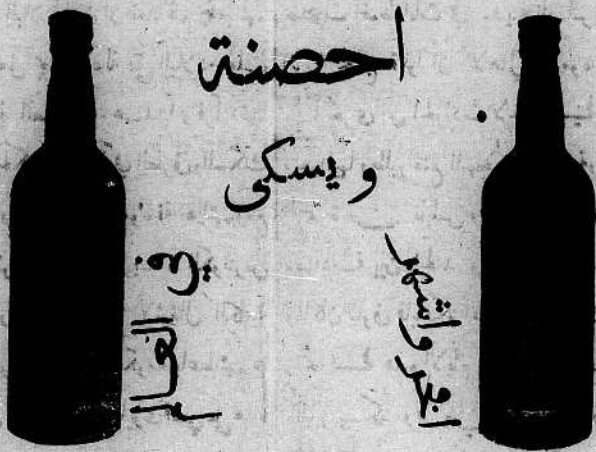 احصنة
ويسكى
افخر واشهر
فى العالم